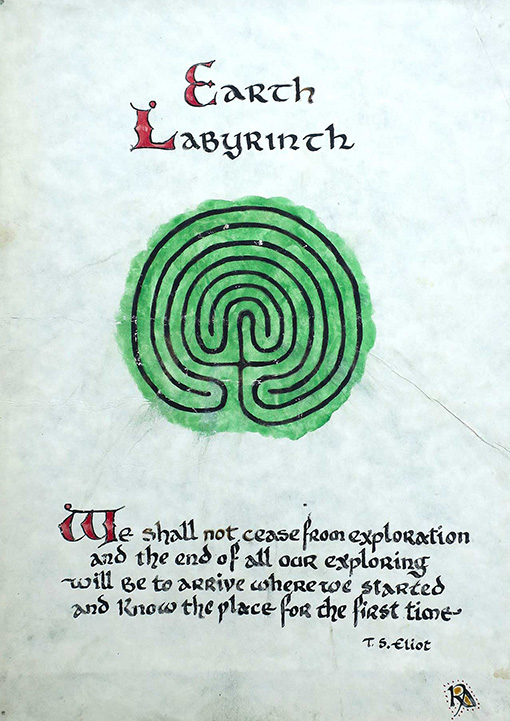 Earth
Labyrinth
We shall not cease from exploration
and the end of all our exploring
will be to arrive where we started
and know the place for the first time
T. S. Eliot